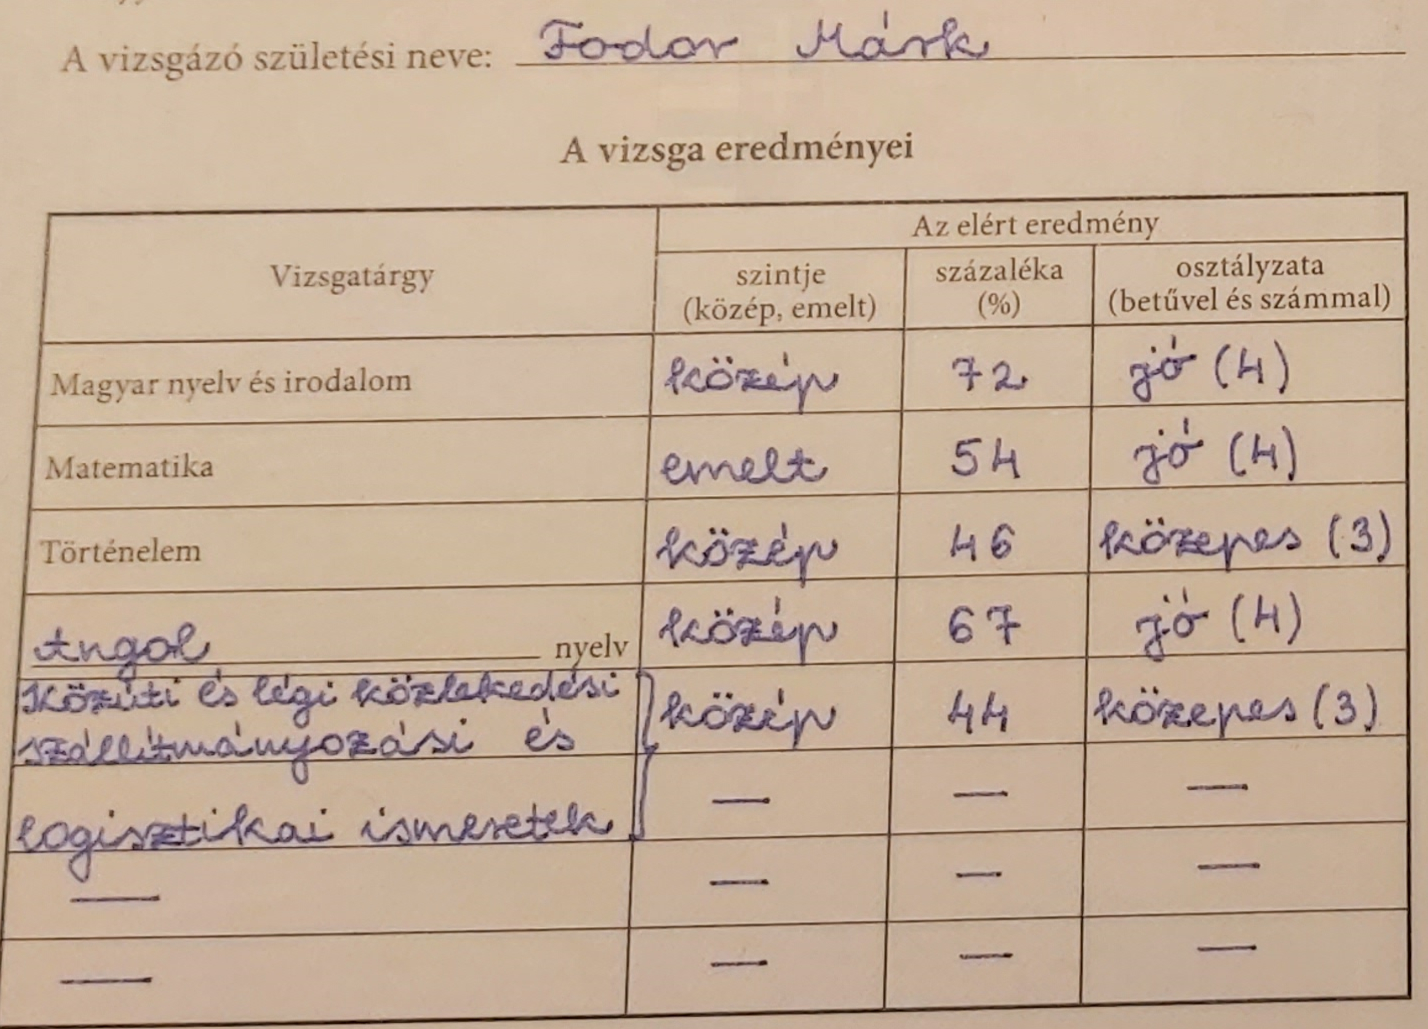 A vizsgázó születési neve: Fodor Márk
A vizsga eredményei
Vizsgatárgy
Az elért eredmény
szintje
(közép, emelt)
százaléka
(%)
osztályzata
(betűvel és számmal)
Magyar nyelv és irodalom közép 72 jó (4)
Matematika emelt 54 jó (4)
Történelem közép 46 közepes (3)
Angol nyelv közép 67 jó (4)
Közúti és légi közlekedési
szállítmányozási és
logisztikai ismeretek
közép 44 közepes (3)
— — —
— — — —
— — — —